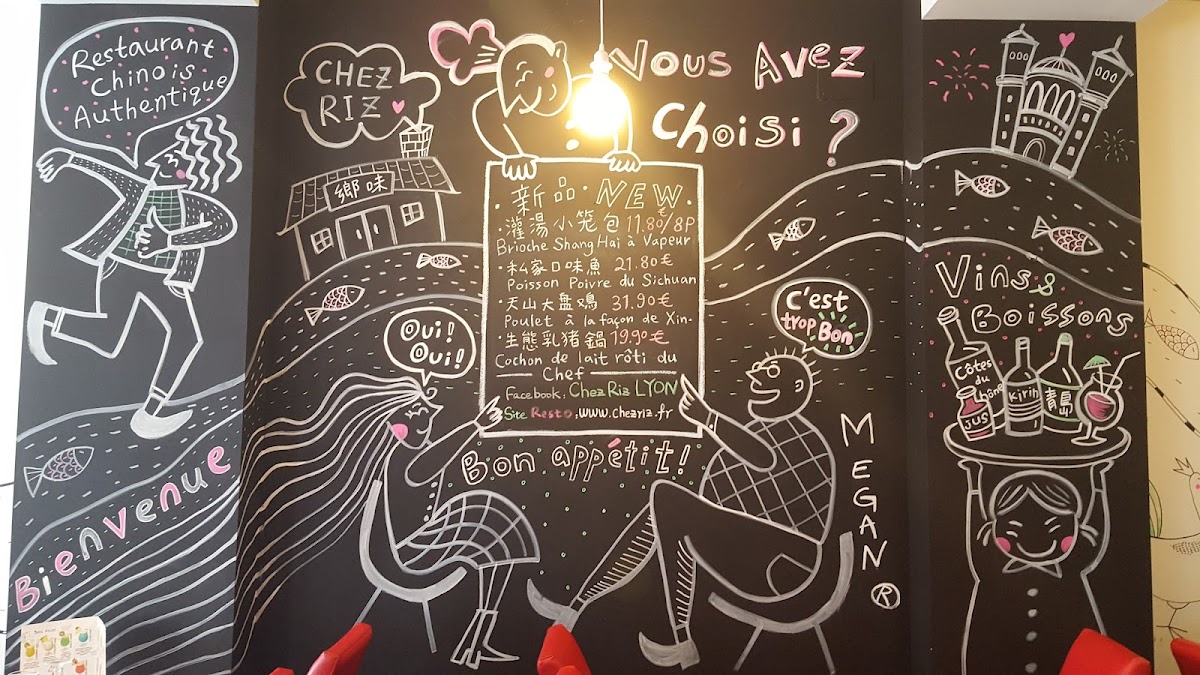 Restaurant
Chinois
Authentique
CHEZ
RIZ
鄉味
Vous Avez
Choisi ?
·新品· NEW·
·灌湯小笼包 11.80€/8P
Brioche ShangHai à Vapeur
·私家口味魚 21.80€
Poisson Poivre du Sichuan
·天山大盘鸡 31.90€
Poulet à la façon de Xin-
·生態乳猪鍋 19.90€
Cochon de lait rôti du
Chef
Facebook: Chez Riz LYON
Site Resto: www.chezriz.fr
Oui!
Oui!
C'est
trop Bon
Bon appétit!
MEGAN®
Vins &
Boissons
Côtes
du
Rhône
JUS
Kirin
青島
Bienvenue